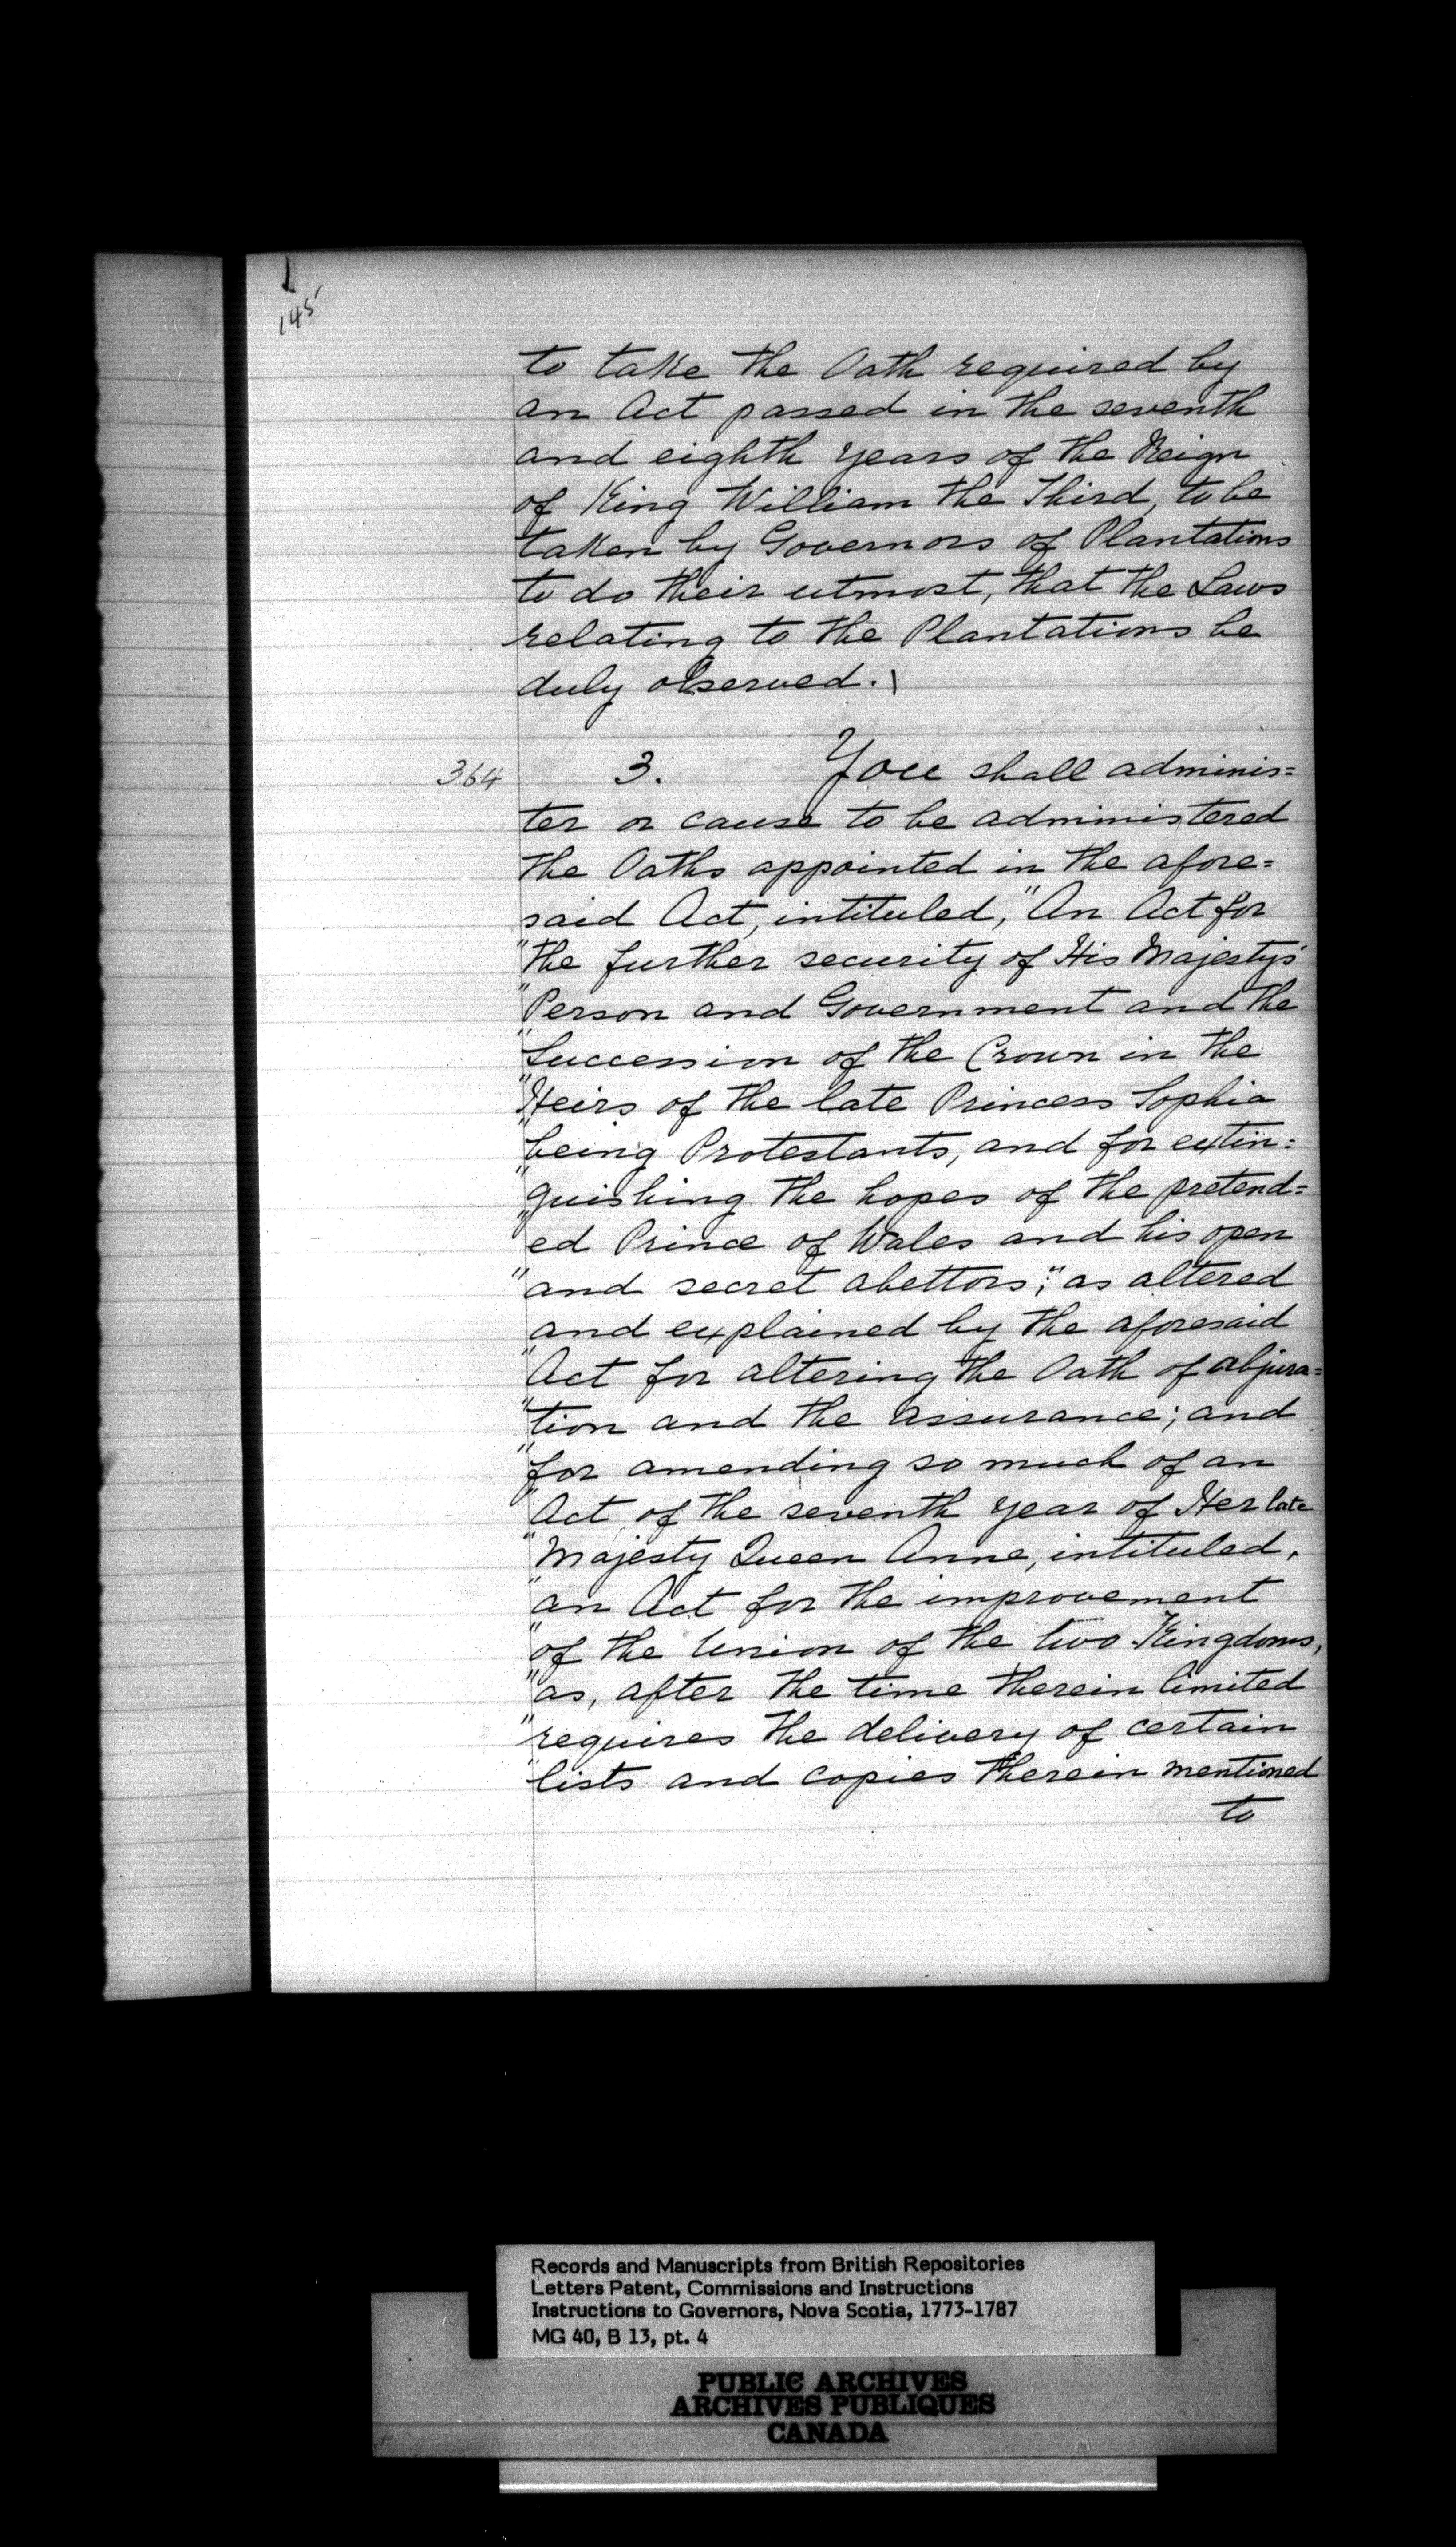 145
to take the Oath required by
an Act passed in the seventh
and eighth years of the Reign
of King William the Third, to be
taken by Governors of Plantations
to do their utmost, that the Laws
relating to the Plantations be
duly observed.
364 3. You shall adminis=
ter or cause to be administered
the Oaths appointed in the afore=
said Act, intituled, "An Act for
"the further security of His Majesty's
"Person and Government and the
"Succession of the Crown in the
"Heirs of the late Princess Sophia
"being Protestants, and for extin=
"guishing the hopes of the pretend=
"ed Prince of Wales and his open
"and secret abettors;" as altered
and explained by the aforesaid
"Act for altering the Oath of abjura=
"tion and the assurance; and
"for amending so much of an
"Act of the seventh year of Her late
"Majesty Queen Anne, intituled,
"an Act for the improvement
"of the Union of the two Kingdoms,
"as, after the time therein limited
"requires the delivery of certain
"lists and copies therein mentioned
to
Records and Manuscripts from British Repositories
Letters Patent, Commissions and Instructions
Instructions to Governors, Nova Scotia, 1773-1787
MG 40, B 13, pt. 4
PUBLIC ARCHIVES
ARCHIVES PUBLIQUES
CANADA